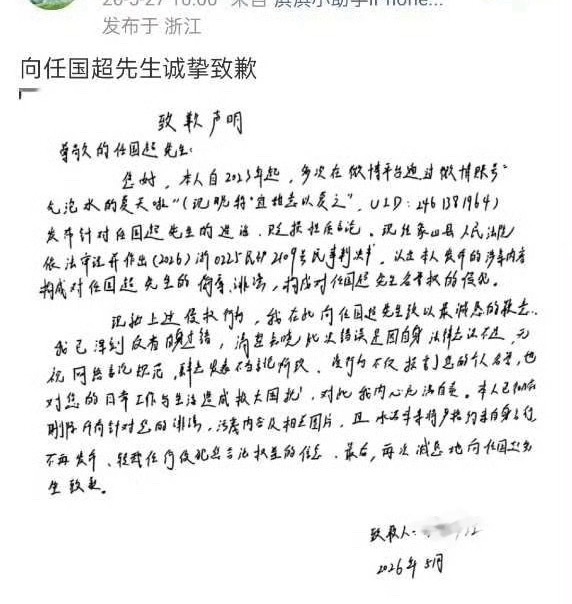 发布于 浙江
向任国超先生诚挚致歉
致歉声明
尊敬的任国超先生:
您好，本人自2023年起，多次在微博平台通过微博账号"
气泡水的夏天啦"(现昵称"且抱去以夏之"，UID:2461381964)
发布针对任国超先生的造谣、贬损性质言论。现经象山县人民法院
依法审理并作出(2026)浙0225民初2109号民事判决书，认定本人发布的涉案内容
构成对任国超先生的侮辱、诽谤，构成对任国超先生名誉权的侵犯。
就上述侵权行为，我在此向任国超先生致以最诚恳的歉意。
我已深刻反省自身过错，清楚知晓此次错误是因自身法律意识不足，无
视网络言论规范，肆意发表不当言论所致。该行为不仅损害了您的个人名誉，也
对您的日常工作与生活造成极大困扰，对此我内心无法自安。本人已彻底
删除所有针对您的诽谤，污蔑内容及相关图片，且承诺未来将严格约束自身言行
不再发布、转载任何侵犯您合法权益的信息。最后，再次诚恳地向任国超先
生致歉。
致歉人:
2026年5月